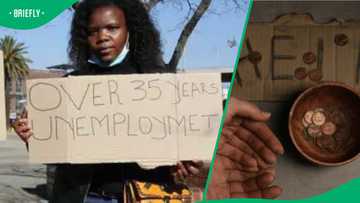 BRIEFLY
OVER 35 YEARS
UNEMPLOYMET
HE